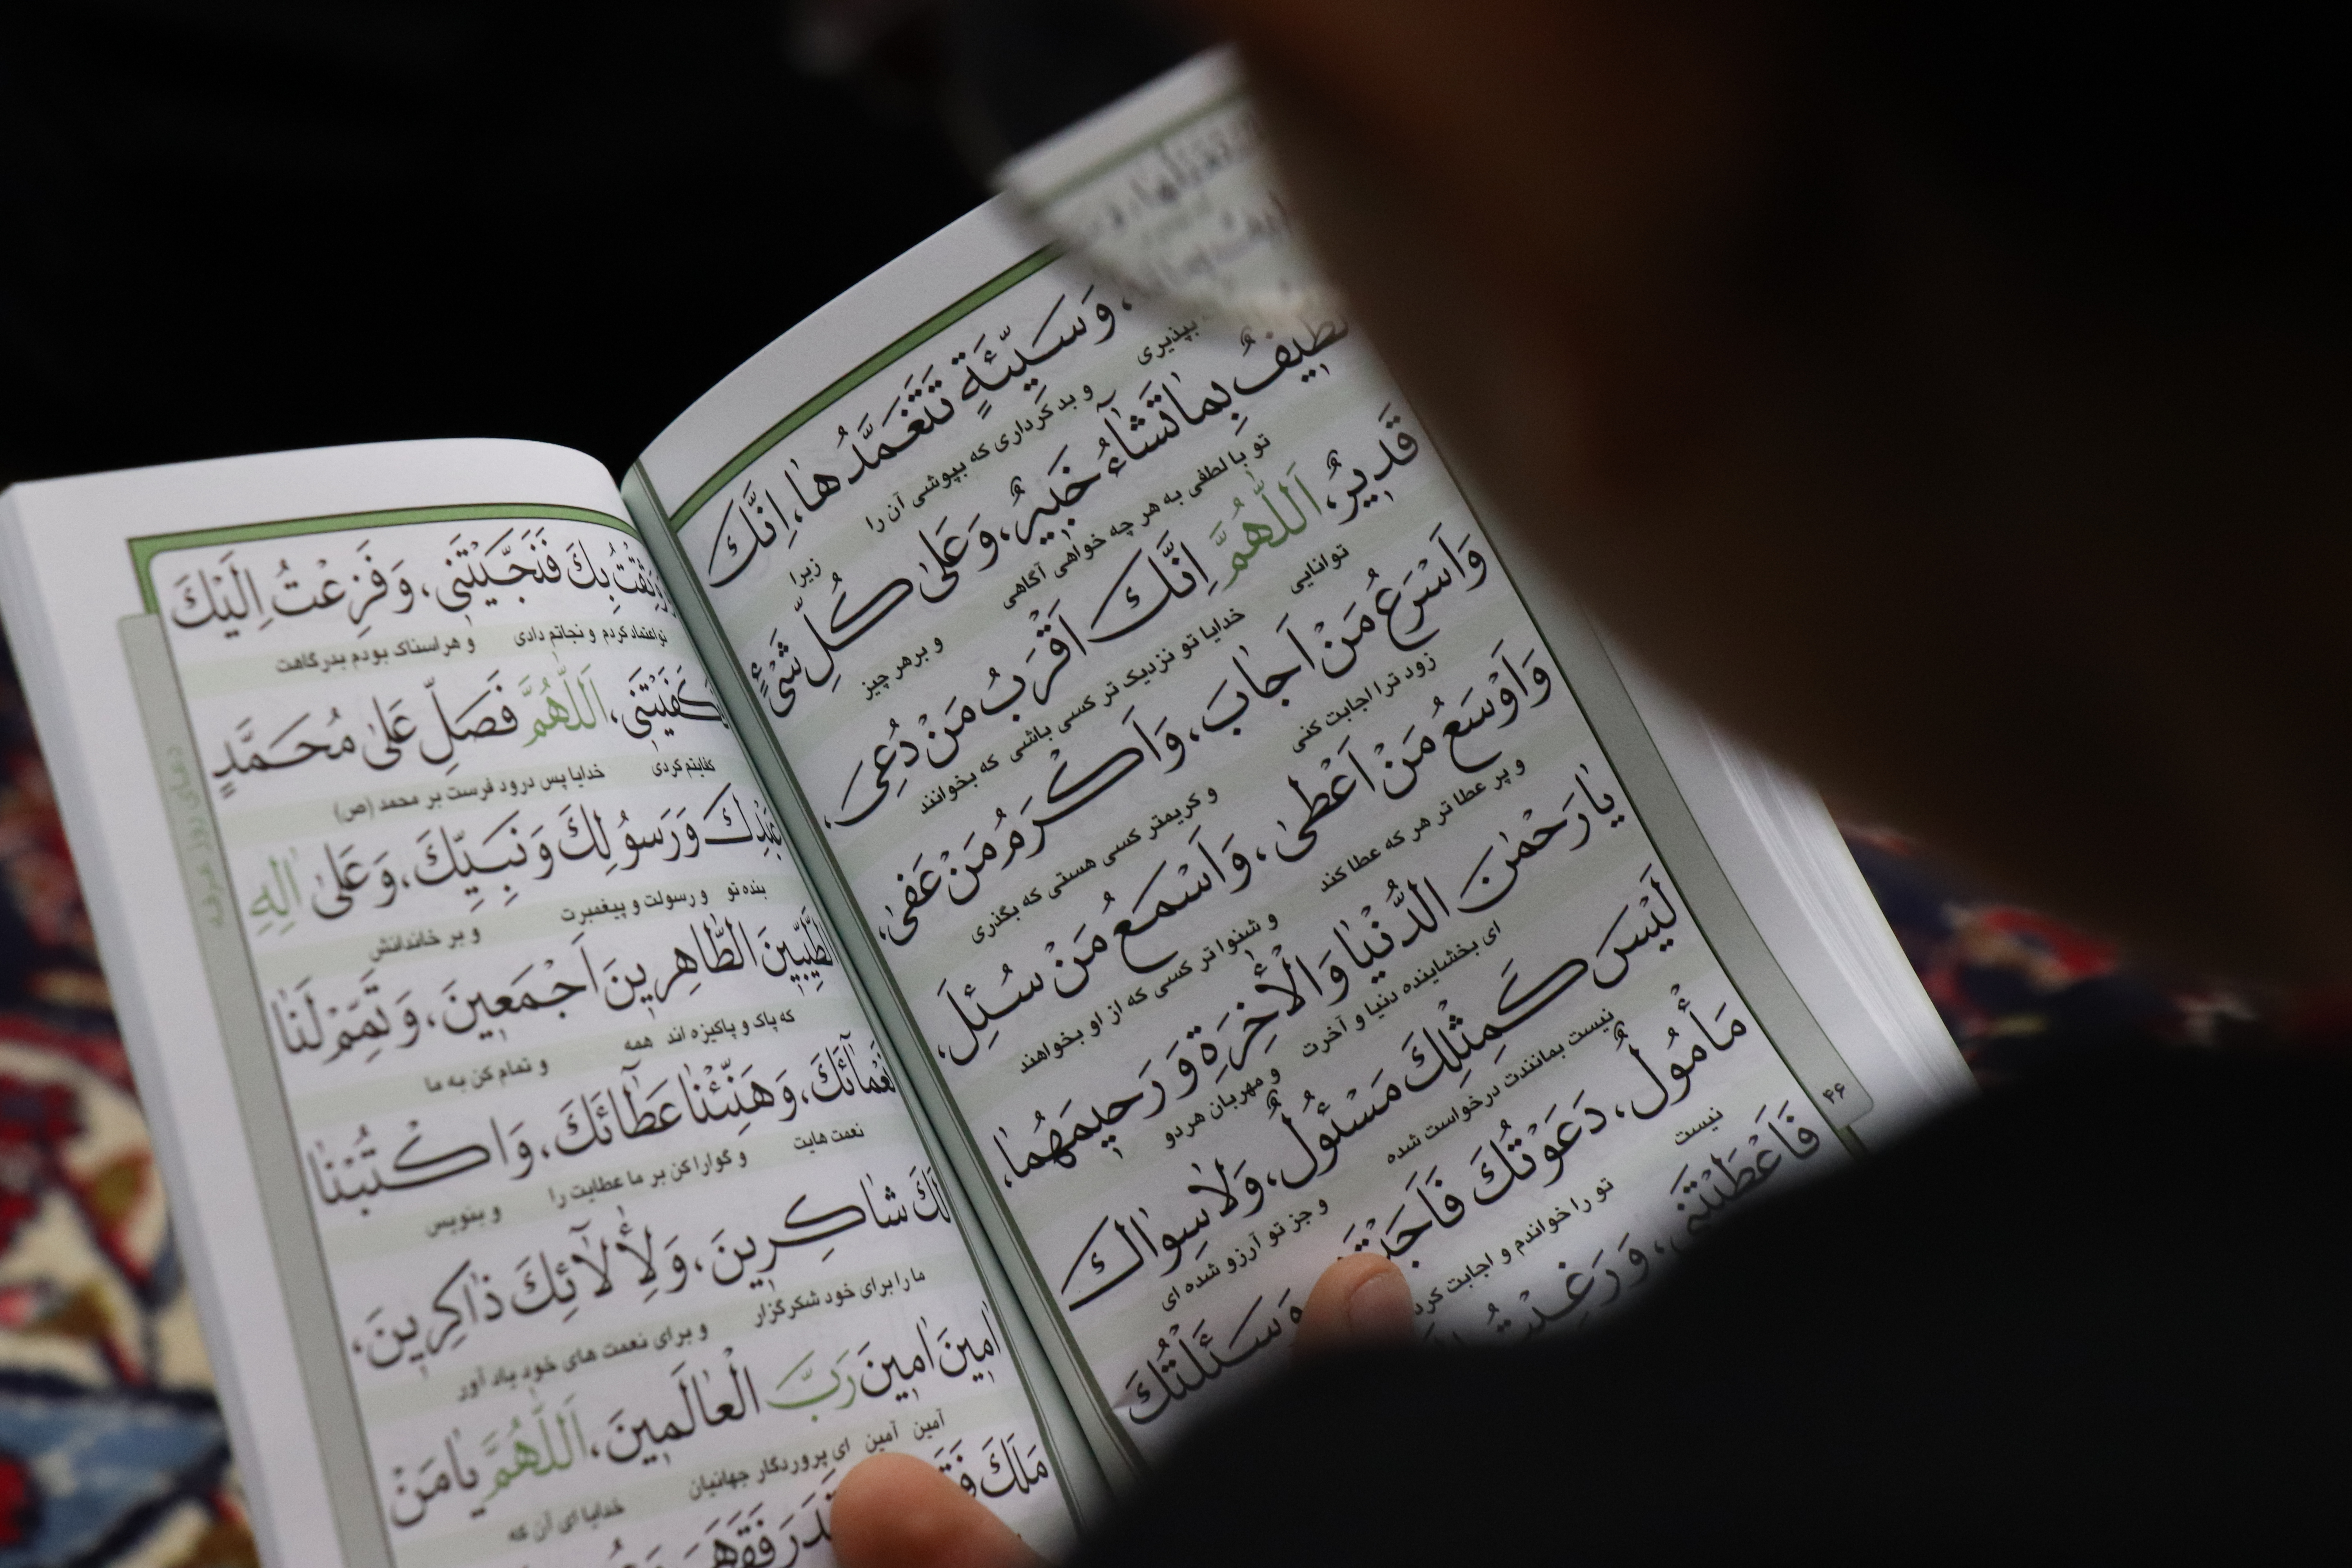 وَسَيِّئَةٍ تَتَغَمَّدُهٰا، اِنَّكَ
بپذیری و بد کرداری که بپوشی آن را زیرا
لَطيفٌ بِمٰا تَشٰآءُ خَبيرٌ، وَعَلىٰ كُلِّ شَىْءٍ
تو با لطفی به هر چه خواهی آگاهی و برهر چیز
قَديرٌ، اَللّٰهُمَّ اِنَّكَ اَقْرَبُ مَنْ دُعِىَ،
توانایی خدایا تو نزدیک تر کسی باشی که بخوانند
وَاَسْرَعُ مَنْ اَجٰابَ، وَاَكْرَمُ مَنْ عَفىٰ،
زود ترا اجابت کنی و کریمتر کسی هستی که بگذری
وَاَوْسَعُ مَنْ اَعْطىٰ، وَاَسْمَعُ مَنْ سُئِلَ،
و پر عطا تر هر که عطا کند و شنوا تر کسی که از او بخواهند
يٰا رَحْمٰنَ الدُّنْيٰا وَالْأٰخِرَةِ وَ رَحيمَهُمٰا،
ای بخشاینده دنیا و آخرت و مهربان هردو
لَيْسَ كَمِثْلِكَ مَسْئُولٌ، وَلٰا سِوٰاكَ
نیست بمانندت درخواست شده و جز تو آرزو شده ای
مَأْمُولٌ، دَعَوْتُكَ فَاَجَبْتَنى وَسَئَلْتُكَ
نیست تو را خواندم و اجابت کرد
فَاَعْطَيْتَنى، وَ رَغِبْتُ
۴۶
وَثِقْتُ بِكَ فَنَجَّيْتَنى، وَ فَزِعْتُ اِلَيْكَ
تو اعتماد کردم و نجاتم دادی و هراسناک بودم بدرگاهت
فَكَفَيْتَنى، اَللّٰهُمَّ فَصَلِّ عَلىٰ مُحَمَّدٍ
کفایتم کردی خدایا پس درود فرست بر محمد (ص)
عَبْدِكَ وَ رَسُولِكَ وَ نَبِيِّكَ، وَعَلىٰ اٰلِهِ
بنده تو و رسولت و پیغمبرت و بر خاندانش
الطَّيِّبينَ الطّٰاهِرينَ اَجْمَعينَ، وَ تَمِّمْ لَنٰا
که پاک و پاکیزه اند همه و تمام کن به ما
نَعْمٰآئَكَ، وَ هَنِّئْنٰا عَطٰآئَكَ، وَ اكْتُبْنٰا
نعمت هایت و گوارا کن بر ما عطایت را و بنویس
لَكَ شٰاكِرينَ، وَ لِأٰلٰآئِكَ ذٰاكِرينَ،
ما را برای خود شکرگزار و برای نعمت های خود یاد آور
اٰمينَ اٰمينَ رَبَّ الْعٰالَمينَ، اَللّٰهُمَّ يٰا مَنْ
آمین آمین ای پروردگار جهانیان خدایا ای آن که
مَلَكَ فَقَدَرَ
دعای روز عرفه